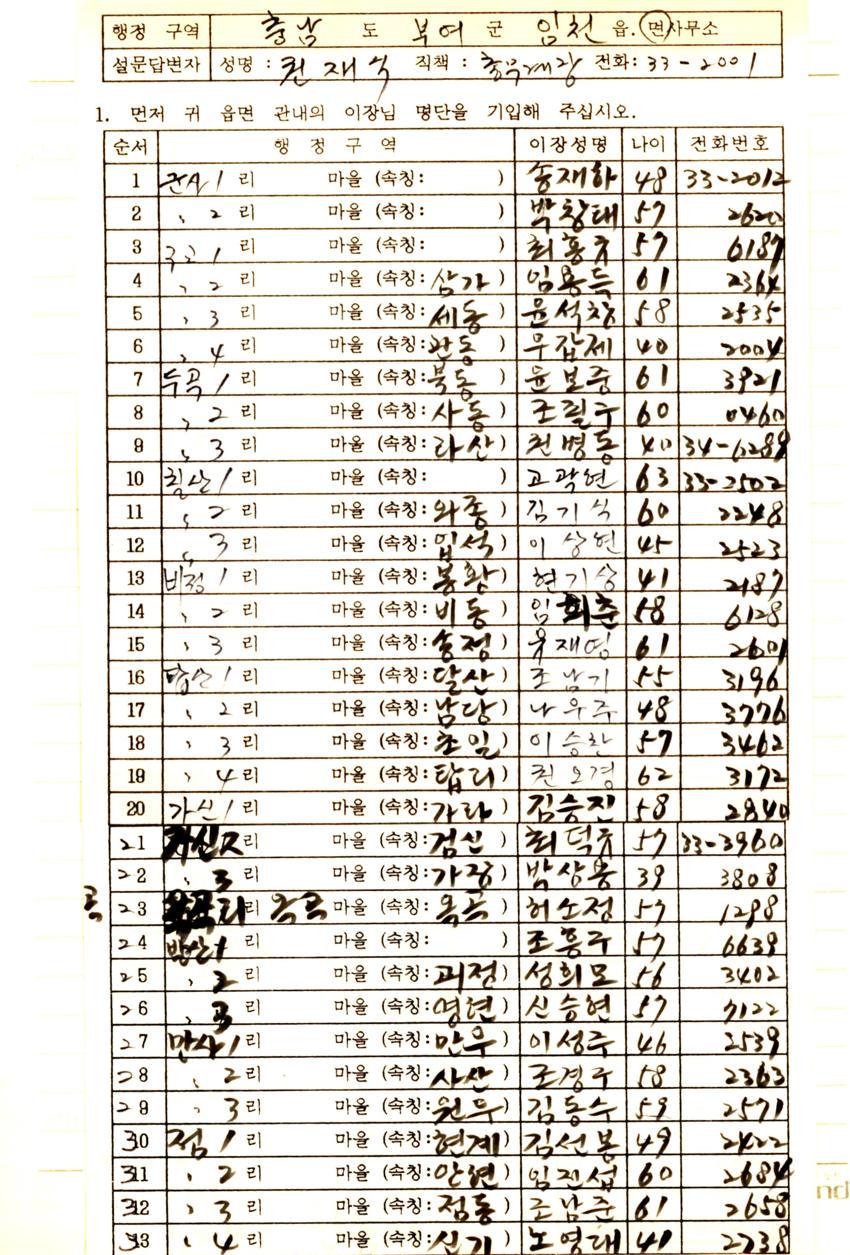 행정 구역 충남 도 부여 군 임천 읍. 면사무소
설문답변자 성명 : 권재 직책 : 총무계장 전화 : 33-2001
1. 먼저 귀 읍면 관내의 이장님 명단을 기입해 주십시오.
순서 행 정 구 역 이장성명 나이 전화번호
1 군사 1 리 마을 (속칭: ) 송재하 48 33-2012
2 〃 2 리 마을 (속칭: ) 박창태 57 2620
3 구교 1 리 마을 (속칭: ) 최홍규 57 6187
4 〃 2 리 마을 (속칭: 삼가 ) 임용득 61 2364
5 〃 3 리 마을 (속칭: 세동 ) 윤석창 58 2535
6 〃 4 리 마을 (속칭: 관동 ) 우갑제 40 2004
7 두곡 1 리 마을 (속칭: 북동 ) 윤보중 61 3921
8 〃 2 리 마을 (속칭: 사동 ) 조필구 60 0460
9 〃 3 리 마을 (속칭: 라산 ) 천병동 40 34-6289
10 칠산 1 리 마을 (속칭: ) 고광현 63 33-2502
11 〃 2 리 마을 (속칭: 와종 ) 김기식 60 2248
12 〃 3 리 마을 (속칭: 입석 ) 이상현 45 2523
13 비정 1 리 마을 (속칭: 봉황 ) 현기상 41 2187
14 〃 2 리 마을 (속칭: 비동 ) 임희춘 58 6128
15 〃 3 리 마을 (속칭: 송정 ) 유재영 61 2601
16 탑산 1 리 마을 (속칭: 달산 ) 조남기 55 3196
17 〃 2 리 마을 (속칭: 남당 ) 나우주 48 3776
18 〃 3 리 마을 (속칭: 초일 ) 이승환 57 3462
19 〃 4 리 마을 (속칭: 탑디 ) 권오경 62 3172
20 가신 1 리 마을 (속칭: 가라 ) 김승진 58 2840
21 가신 2 리 마을 (속칭: 검신 ) 최덕규 57 33-3960
22 〃 3 리 마을 (속칭: 가장 ) 박상용 39 3808
23 리 옥곡 마을 (속칭: 옥곡 ) 허소정 57 1298
24 발산 1 리 마을 (속칭: ) 조흥구 57 6639
25 〃 2 리 마을 (속칭: 괴정 ) 성희모 56 3402
26 〃 3 리 마을 (속칭: 영현 ) 신승현 57 7122
27 만사 1 리 마을 (속칭: 만우 ) 이성주 46 2539
28 〃 2 리 마을 (속칭: 사산 ) 조경구 58 2363
29 〃 3 리 마을 (속칭: 원두 ) 김동수 59 2571
30 점 1 리 마을 (속칭: 현계 ) 김선봉 49 2422
31 〃 2 리 마을 (속칭: 안현 ) 임진섭 60 2684
32 〃 3 리 마을 (속칭: 점동 ) 조남준 61 2658
33 〃 4 리 마을 (속칭: 신기 ) 노영대 41 2738